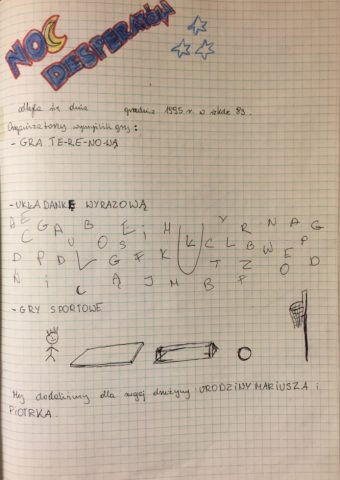 NOC
DESPERATÓW
odbyła się dnia grudnia 1995 r. w szkole 89.
Organizatorzy wymyślili gry:
- GRA TE-RE-NO-WĄ
- UKŁADANKĘ WYRAZOWĄ
A E C G A B E I H Y R N A G
U O S K C L B W E P
D P D L G F K T Z O D
N I C Ą J M B F
- GRY SPORTOWE
My dodaliśmy dla naszej drużyny URODZINY MARIUSZA i
PIOTRKA.